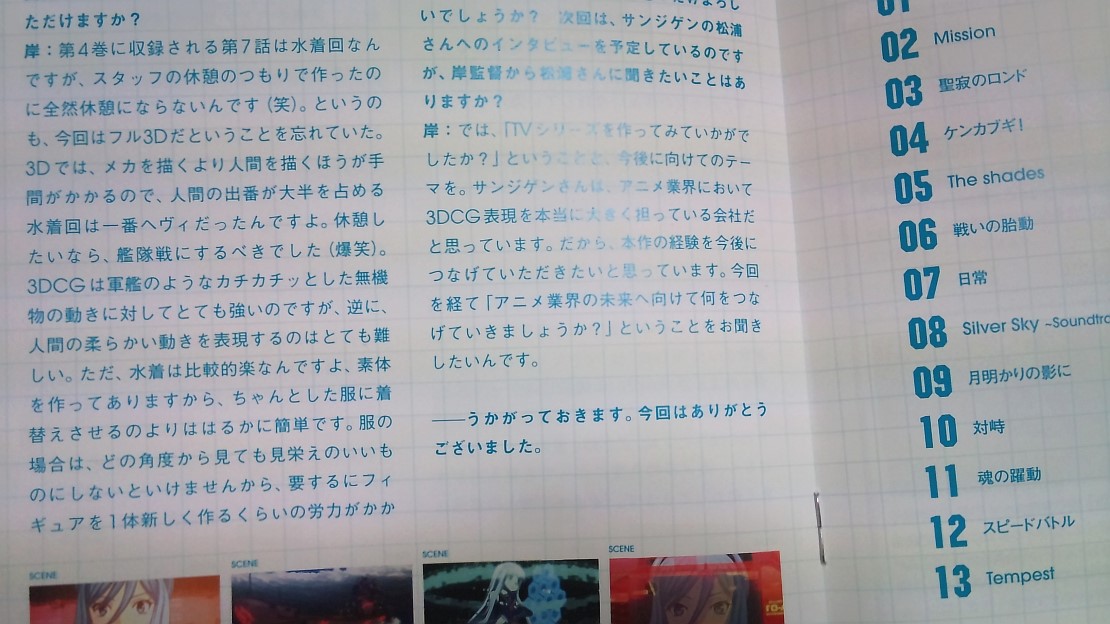 ただけますか？
岸：第4巻に収録される第7話は水着回なん
ですが、スタッフの休憩のつもりで作ったの
に全然休憩にならないんです（笑）。というの
も、今回はフル3Dだということを忘れていた。
3Dでは、メカを描くより人間を描くほうが手
間がかかるので、人間の出番が大半を占める
水着回は一番ヘヴィだったんですよ。休憩し
たいなら、艦隊戦にするべきでした（爆笑）。
3DCGは軍艦のようなカチカチッとした無機
物の動きに対してとても強いのですが、逆に、
人間の柔らかい動きを表現するのはとても難
しい。ただ、水着は比較的楽なんですよ、素体
を作ってありますから、ちゃんとした服に着
替えさせるのよりははるかに簡単です。服の
場合は、どの角度から見ても見栄えのいいも
のにしないといけませんから、要するにフィ
ギュアを1体新しく作るくらいの労力がかか
いでしょうか？　次回は、サンジゲンの松浦
さんへのインタビューを予定しているのです
が、岸監督から松浦さんに聞きたいことはあ
りますか？
岸：では、「TVシリーズを作ってみていかがで
したか？」ということと、今後に向けてのテー
マを。サンジゲンさんは、アニメ業界において
3DCG表現を本当に大きく担っている会社だ
と思っています。だから、本作の経験を今後に
つなげていただきたいと思っています。今回
を経て「アニメ業界の未来へ向けて何をつな
げていきましょうか？」ということをお聞き
したいんです。
――うかがっておきます。今回はありがとう
ございました。
SCENE
SCENE
SCENE
SCENE
01
02 Mission
03 聖寂のロンド
04 ケンカブギ！
05 The shades
06 戦いの胎動
07 日常
08 Silver Sky ~Soundtra
09 月明かりの影に
10 対峙
11 魂の躍動
12 スピードバトル
13 Tempest